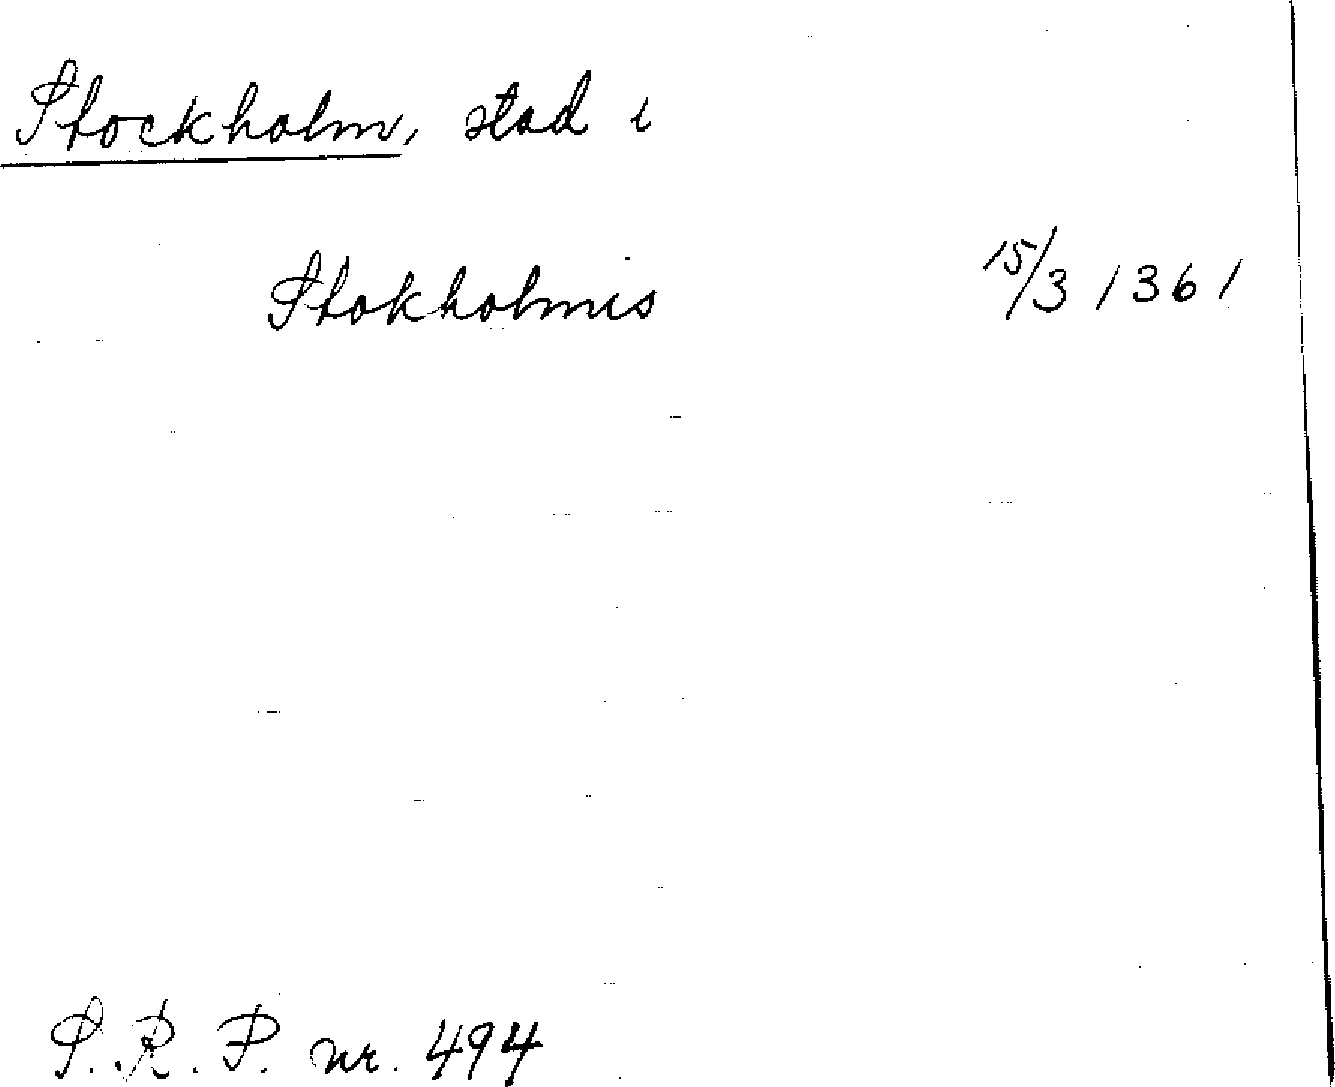 Stockholm, stad i
Stokholmis 15/3 1361
S.R.P. nr. 494